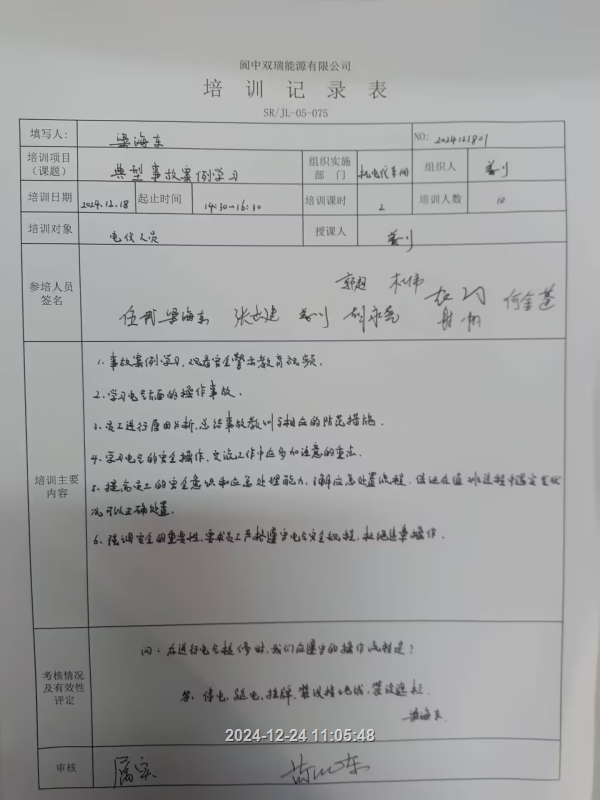 阆中双瑞能源有限公司
培 训 记 录 表
SR/JL-05-075
填写人: 梁海东 NO: 2024121801
培训项目（课题） 典型事故案例学习 组织实施部 门 机电仪车间 组织人
培训日期 2024.12.18 起止时间 14:30-16:30 培训课时 2 培训人数 10
培训对象 电仪人员 授课人
参培人员签名
梁海东 何金莲
培训主要内容
1. 事故案例学习、观看安全警示教育视频.
2. 学习电气方面的操作事故.
3. 员工进行原因分析,总结事故教训与相应的防范措施.
4. 学习电气的安全操作,交流工作中应多加注意的重点.
5. 提高员工的安全意识和应急处理能力,了解应急处置流程,保证在值班过程中遇突发状
况可以正确处置.
6. 强调安全的重要性,要求员工严格遵守电气安全规程,杜绝违章操作.
考核情况及有效性评定
问: 在进行电气检修时,我们应遵守的操作流程是?
答: 停电,验电,挂牌,装设接地线,装设遮栏.
梁海东
2024-12-24 11:05:48
审核 属实